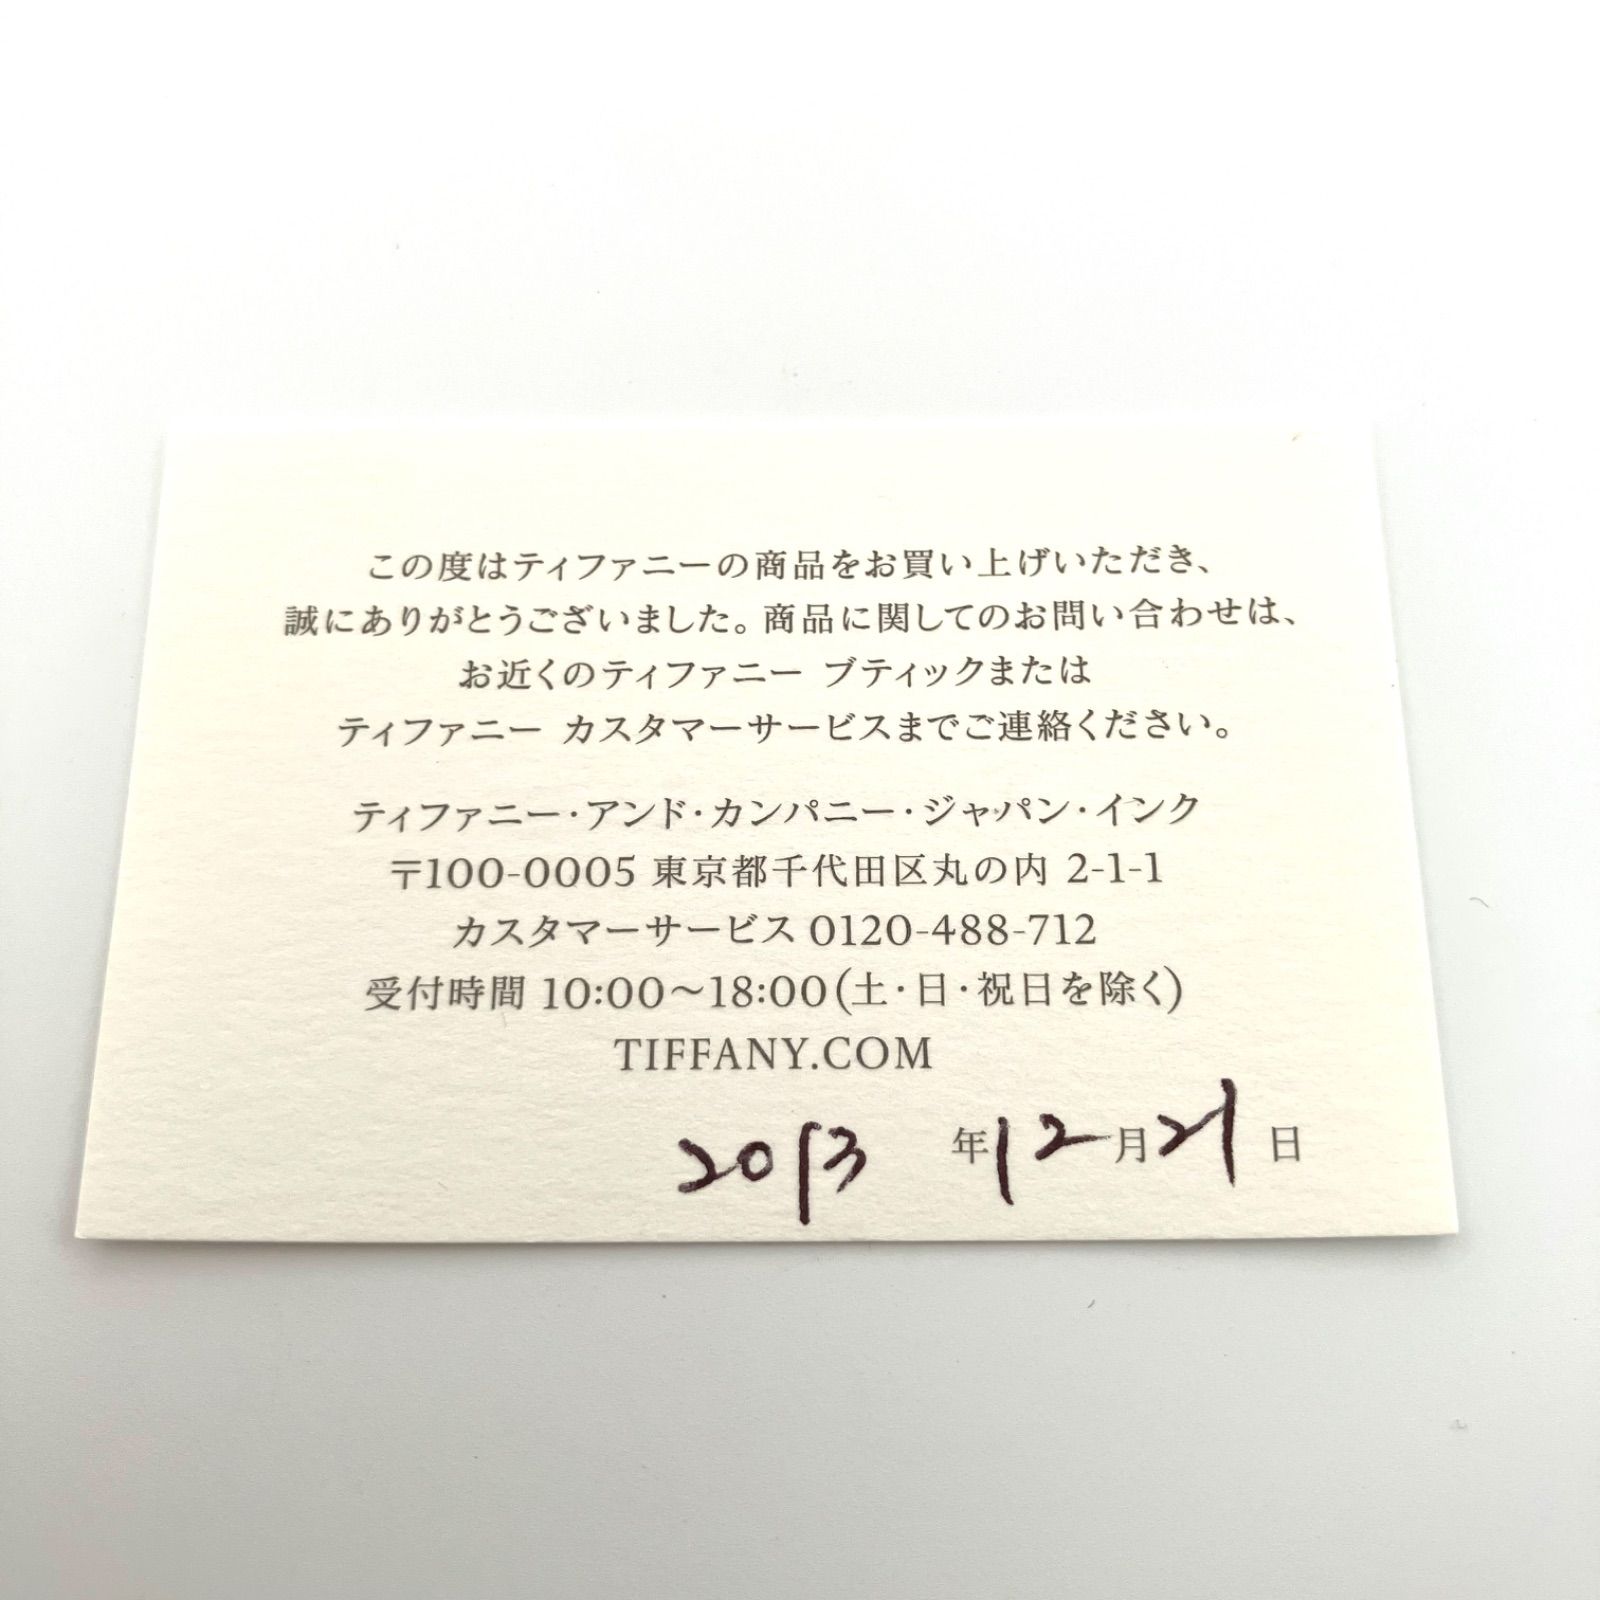 この度はティファニーの商品をお買い上げいただき、
誠にありがとうございました。商品に関してのお問い合わせは、
お近くのティファニー ブティックまたは
ティファニー カスタマーサービスまでご連絡ください。
ティファニー・アンド・カンパニー・ジャパン・インク
〒100-0005 東京都千代田区丸の内 2-1-1
カスタマーサービス 0120-488-712
受付時間 10:00〜18:00(土・日・祝日を除く)
TIFFANY.COM
2013 年 12 月 21 日